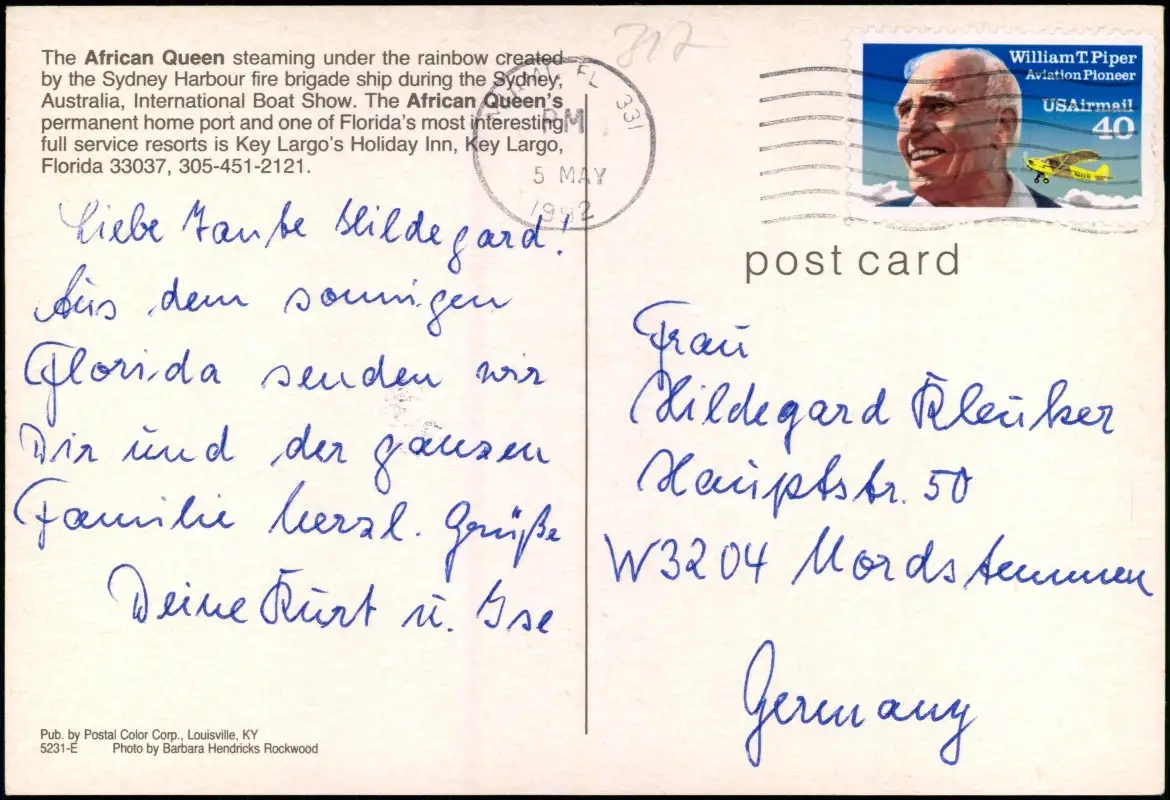 The African Queen steaming under the rainbow created
by the Sydney Harbour fire brigade ship during the Sydney,
Australia, International Boat Show. The African Queen's
permanent home port and one of Florida's most interesting
full service resorts is Key Largo's Holiday Inn, Key Largo,
Florida 33037, 305-451-2121.
Liebe Tante Hildegard!
Aus dem sonnigen
Florida senden wir
Dir und der ganzen
Familie herzl. Grüße
Deine Kurt u. Ise
Pub. by Postal Color Corp., Louisville, KY
5231-E Photo by Barbara Hendricks Rockwood
317
FL 331
PM
5 MAY
1992
William T. Piper
Aviation Pioneer
USAirmail
40
post card
Frau
Hildegard Kleuker
Hauptstr. 50
W3204 Nordstemmen
Germany